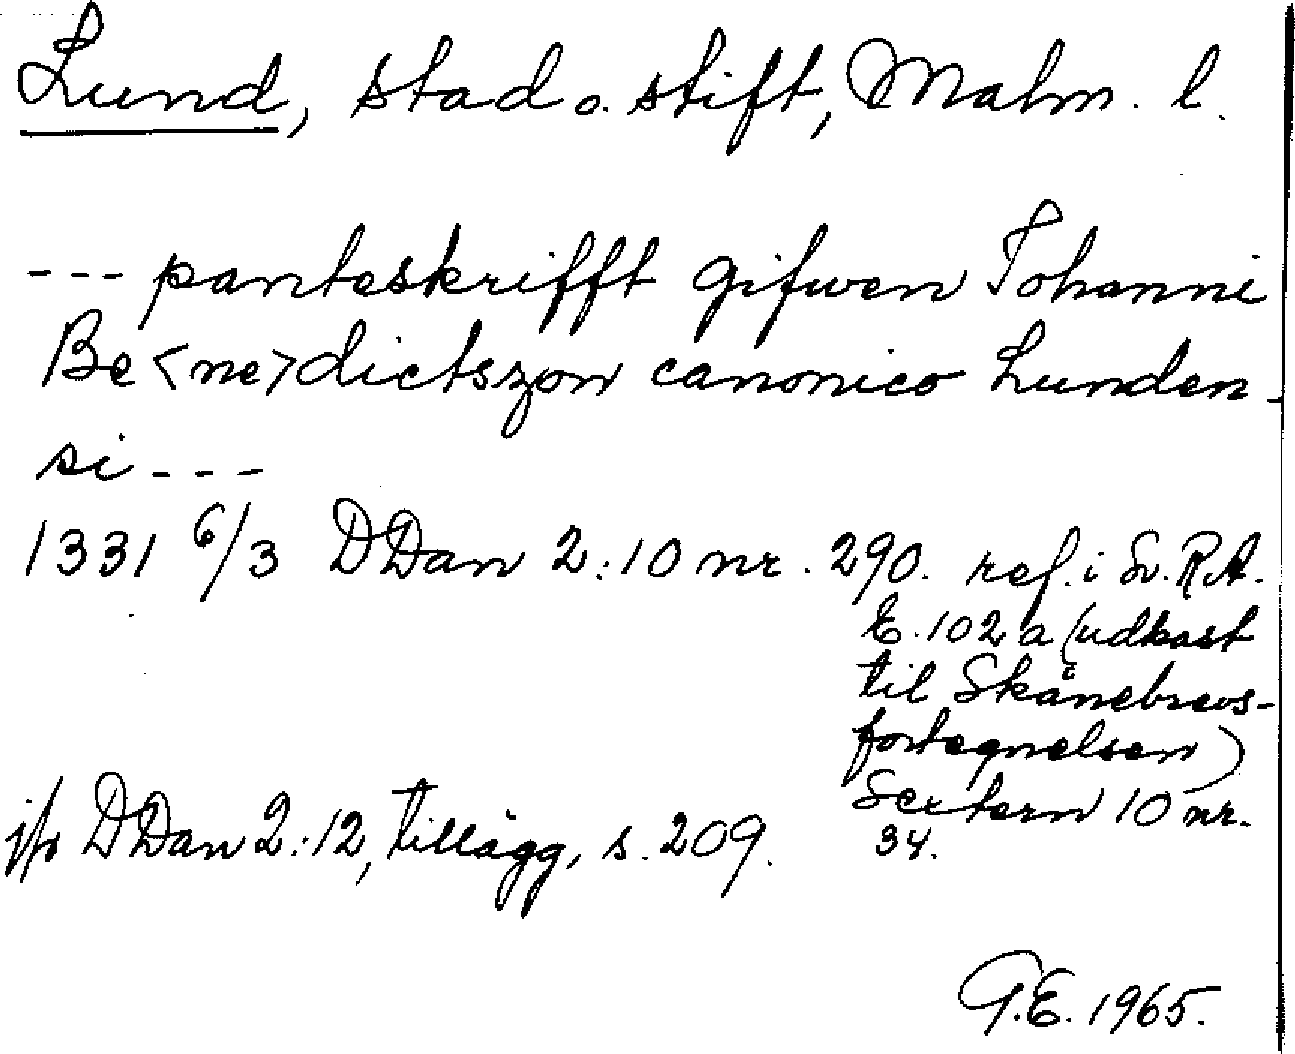 Lund, stad o. stift, Malm. l.
--- panteskrifft gifwen Johanni
Be<ne>dictszon canonico Lunden-
si ---
1331 6/3 DDan 2:10 nr. 290. ref. i Sv. R.A.
E. 102 a (udkast
til Skånebrevs-
fortegnelsen)
Sextern 10 nr.
34.
jfr DDan 2:12, tillägg, s. 209.
G.E. 1965.